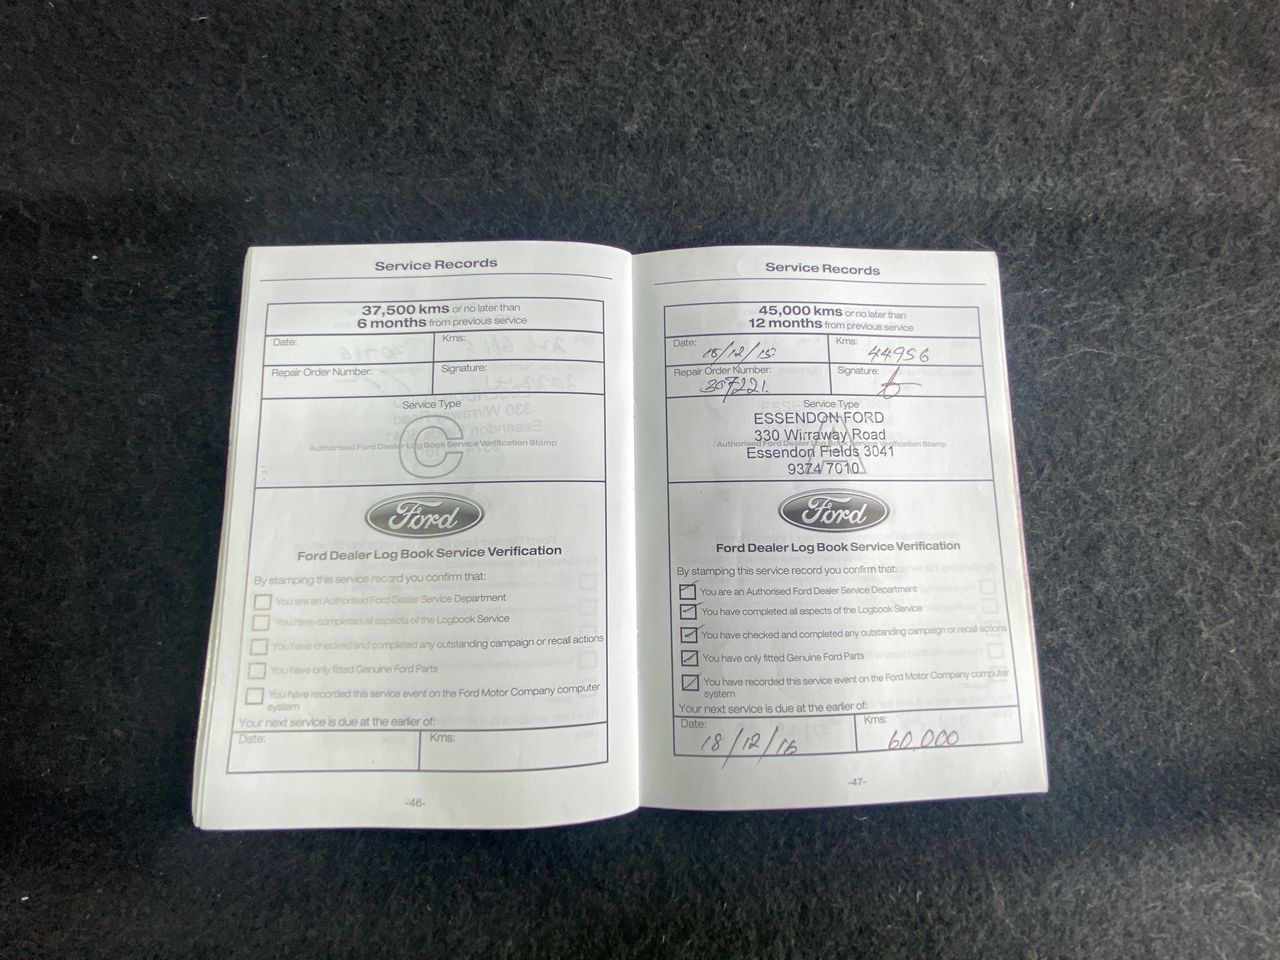 Service Records
37,500 kms or no later than
6 months from previous service
Date:
Kms:
Repair Order Number:
Signature:
Service Type
C
Authorised Ford Dealer Log Book Service Verification Stamp
Ford
Ford Dealer Log Book Service Verification
By stamping this service record you confirm that:
You are an Authorised Ford Dealer Service Department
You have completed all aspects of the Logbook Service
You have checked and completed any outstanding campaign or recall actions
You have only fitted Genuine Ford Parts
You have recorded this service event on the Ford Motor Company computer
system
Your next service is due at the earlier of:
Date:
Kms:
-46-
Service Records
45,000 kms or no later than
12 months from previous service
Date: 18/12/15
Kms: 44956
Repair Order Number: 307221
Signature:
Service Type
A
ESSENDON FORD
330 Wirraway Road
Authorised Ford Dealer Log Book Service Verification Stamp
Essendon Fields 3041
9374 7010
Ford
Ford Dealer Log Book Service Verification
By stamping this service record you confirm that:
You are an Authorised Ford Dealer Service Department
You have completed all aspects of the Logbook Service
You have checked and completed any outstanding campaign or recall actions
You have only fitted Genuine Ford Parts
You have recorded this service event on the Ford Motor Company computer
system
Your next service is due at the earlier of:
Date: 18/12/16
Kms: 60,000
-47-